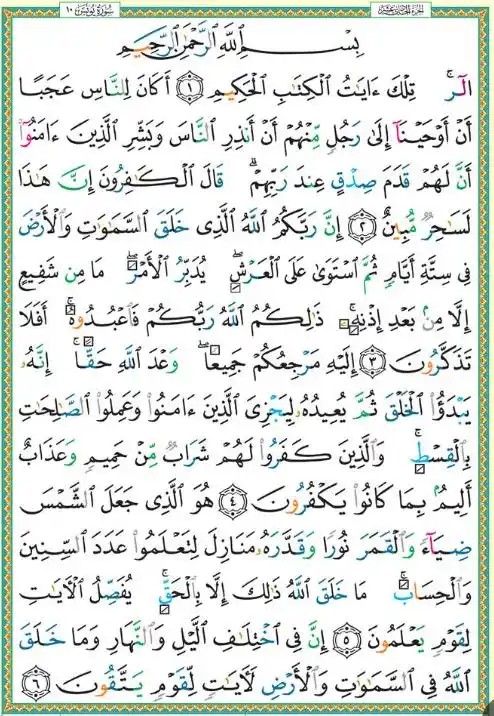 سُورَةُ يُونُسَ ١٠
بِسْمِ ٱللَّهِ ٱلرَّحْمَٰنِ ٱلرَّحِيمِ
الٓرۚ تِلْكَ ءَايَٰتُ ٱلْكِتَٰبِ ٱلْحَكِيمِ ١ أَكَانَ لِلنَّاسِ عَجَبًا
أَنْ أَوْحَيْنَآ إِلَىٰ رَجُلٍ مِّنْهُمْ أَنْ أَنذِرِ ٱلنَّاسَ وَبَشِّرِ ٱلَّذِينَ ءَامَنُوٓا۟
أَنَّ لَهُمْ قَدَمَ صِدْقٍ عِندَ رَبِّهِمْۗ قَالَ ٱلْكَٰفِرُونَ إِنَّ هَٰذَا
لَسَٰحِرٌ مُّبِينٌ ٢ إِنَّ رَبَّكُمُ ٱللَّهُ ٱلَّذِى خَلَقَ ٱلسَّمَٰوَٰتِ وَٱلْأَرْضَ
فِى سِتَّةِ أَيَّامٍ ثُمَّ ٱسْتَوَىٰ عَلَى ٱلْعَرْشِۖ يُدَبِّرُ ٱلْأَمْرَۖ مَا مِن شَفِيعٍ
إِلَّا مِنۢ بَعْدِ إِذْنِهِۦۚ ذَٰلِكُمُ ٱللَّهُ رَبُّكُمْ فَٱعْبُدُوهُۚ أَفَلَا
تَذَكَّرُونَ ٣ إِلَيْهِ مَرْجِعُكُمْ جَمِيعًاۖ وَعْدَ ٱللَّهِ حَقًّاۚ إِنَّهُۥ
يَبْدَؤُا۟ ٱلْخَلْقَ ثُمَّ يُعِيدُهُۥ لِيَجْزِىَ ٱلَّذِينَ ءَامَنُوا۟ وَعَمِلُوا۟ ٱلصَّٰلِحَٰتِ
بِٱلْقِسْطِۚ وَٱلَّذِينَ كَفَرُوا۟ لَهُمْ شَرَابٌ مِّنْ حَمِيمٍ وَعَذَابٌ
أَلِيمٌۢ بِمَا كَانُوا۟ يَكْفُرُونَ ٤ هُوَ ٱلَّذِى جَعَلَ ٱلشَّمْسَ
ضِيَآءً وَٱلْقَمَرَ نُورًا وَقَدَّرَهُۥ مَنَازِلَ لِتَعْلَمُوا۟ عَدَدَ ٱلسِّنِينَ
وَٱلْحِسَابَۚ مَا خَلَقَ ٱللَّهُ ذَٰلِكَ إِلَّا بِٱلْحَقِّۚ يُفَصِّلُ ٱلْءَايَٰتِ
لِقَوْمٍ يَعْلَمُونَ ٥ إِنَّ فِى ٱخْتِلَٰفِ ٱلَّيْلِ وَٱلنَّهَارِ وَمَا خَلَقَ
ٱللَّهُ فِى ٱلسَّمَٰوَٰتِ وَٱلْأَرْضِ لَءَايَٰتٍ لِّقَوْمٍ يَتَّقُونَ ٦